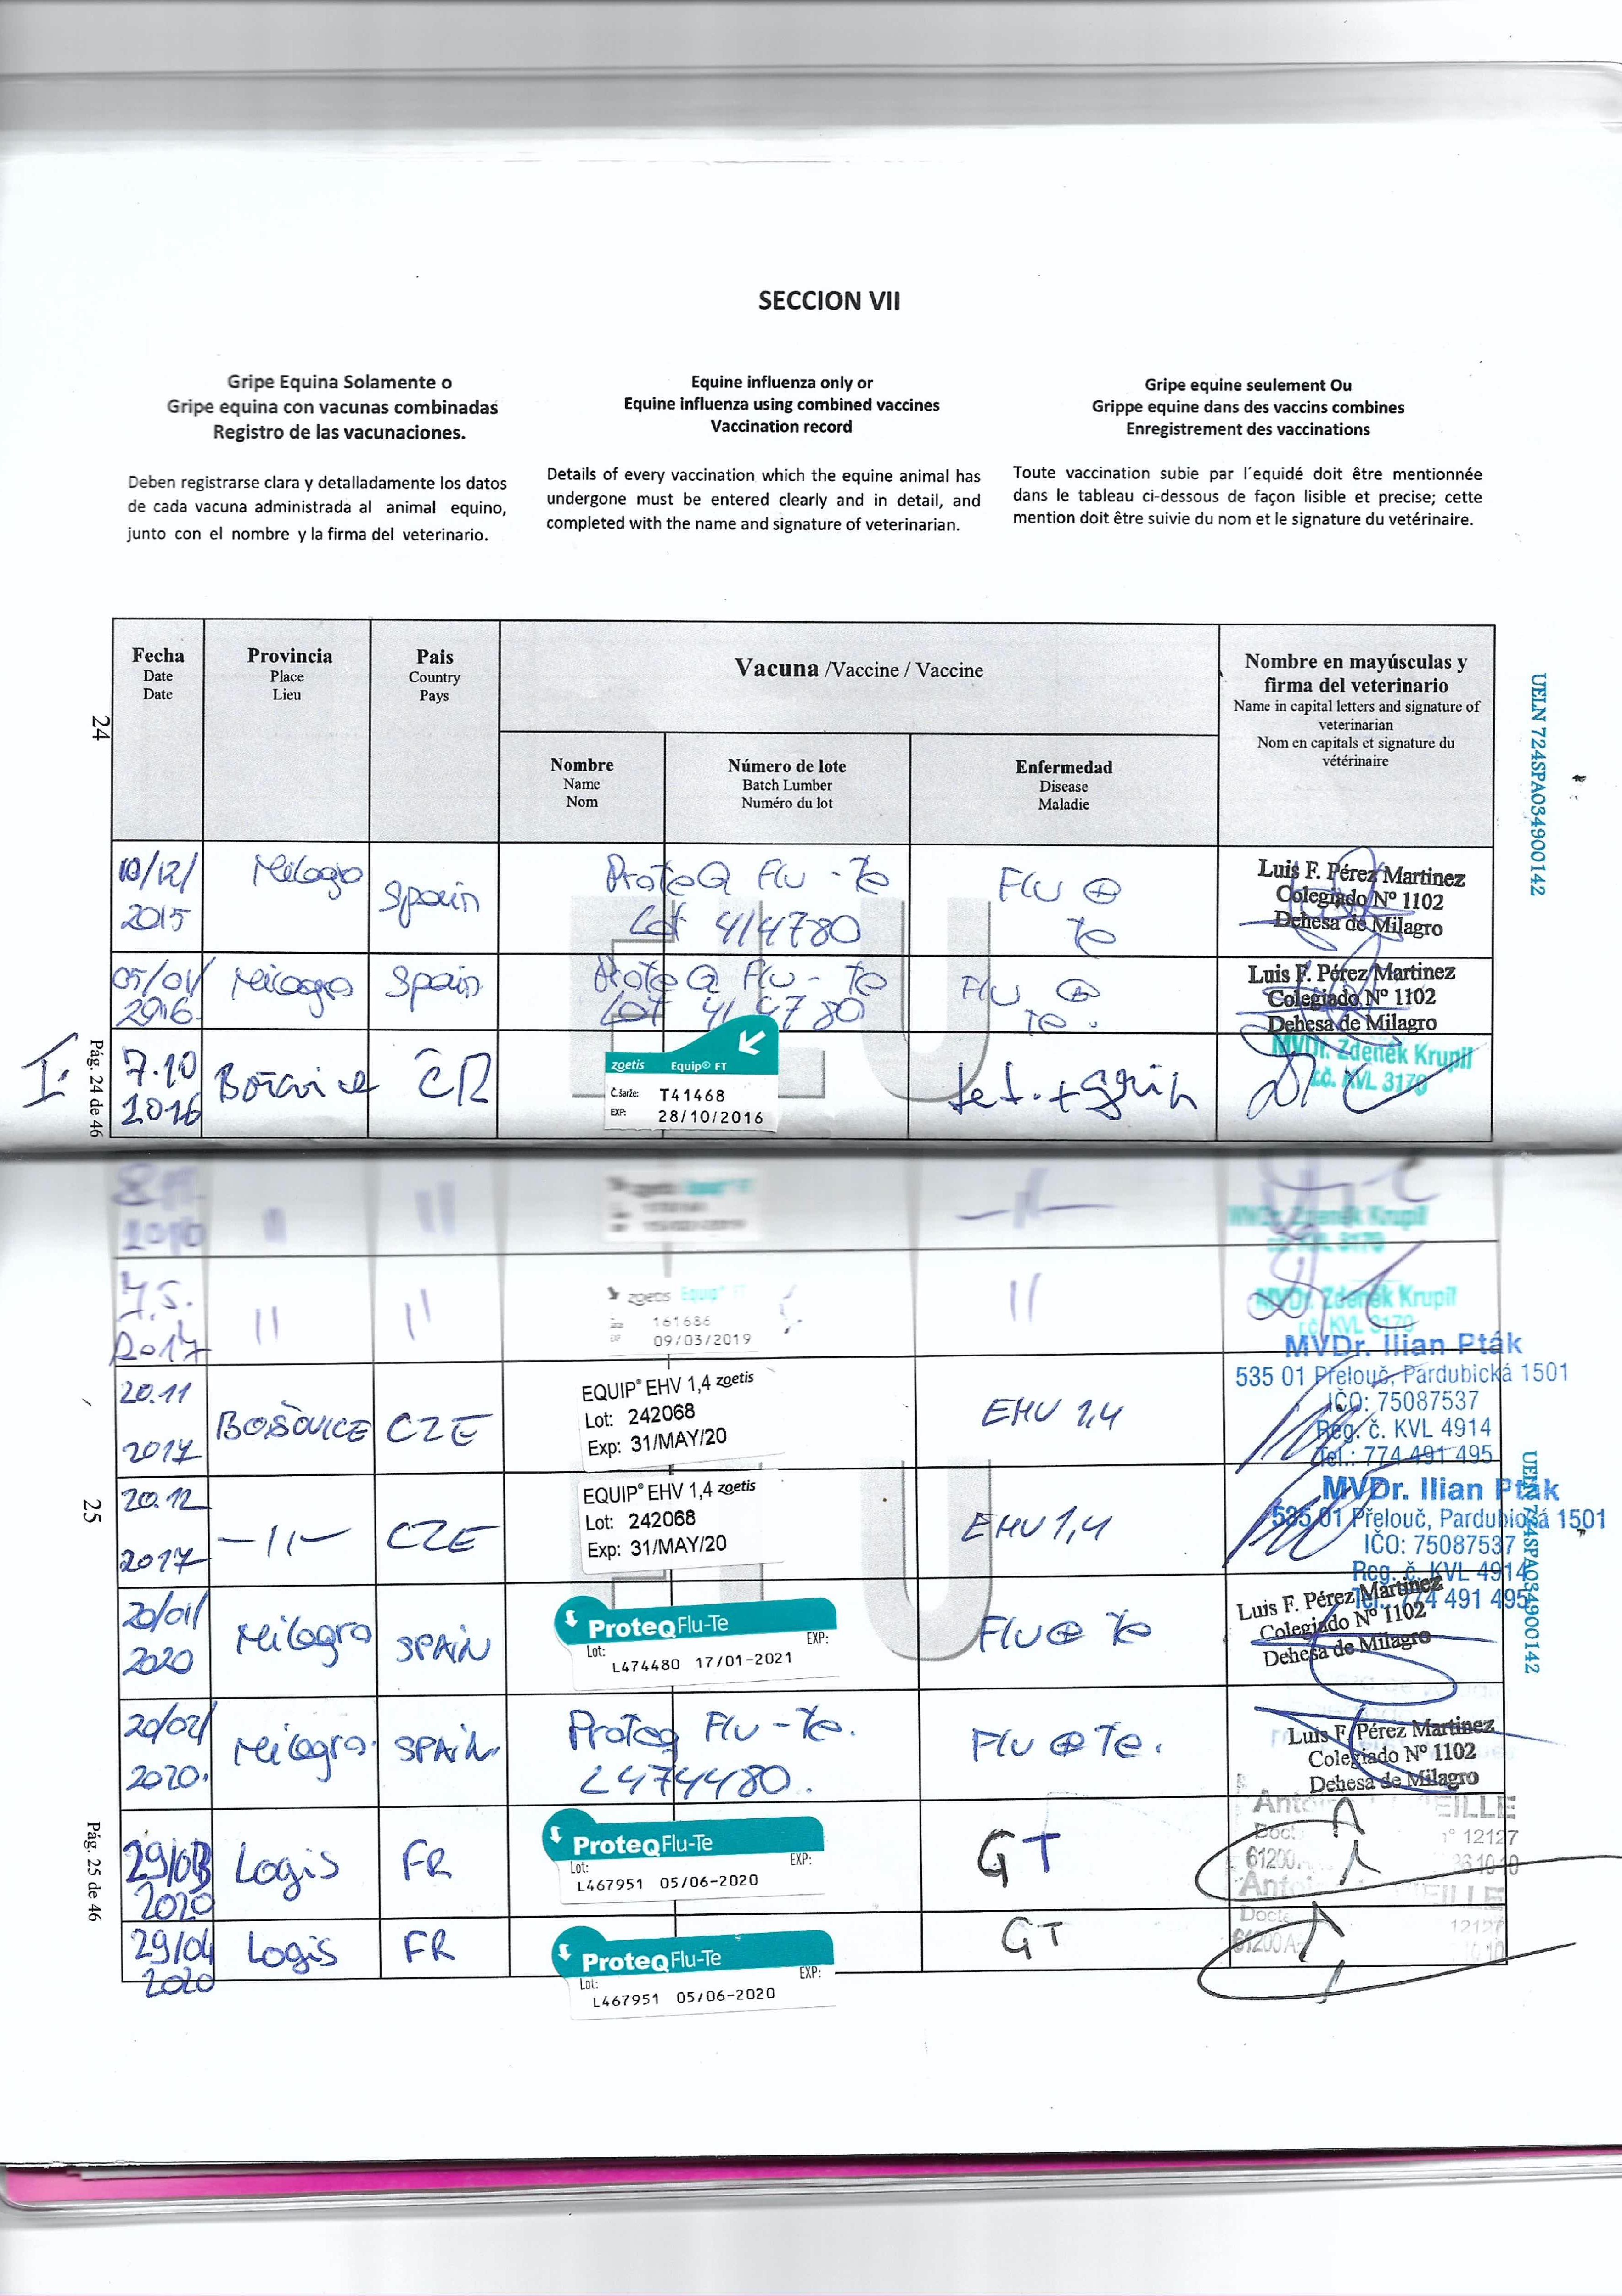 SECCION VII
Gripe Equina Solamente o
Gripe equina con vacunas combinadas
Registro de las vacunaciones.
Deben registrarse clara y detalladamente los datos
de cada vacuna administrada al animal equino,
junto con el nombre y la firma del veterinario.
Equine influenza only or
Equine influenza using combined vaccines
Vaccination record
Details of every vaccination which the equine animal has
undergone must be entered clearly and in detail, and
completed with the name and signature of veterinarian.
Gripe equine seulement Ou
Grippe equine dans des vaccins combines
Enregistrement des vaccinations
Toute vaccination subie par l'equidé doit être mentionnée
dans le tableau ci-dessous de façon lisible et precise; cette
mention doit être suivie du nom et le signature du vetérinaire.
Fecha
Date
Date
Provincia
Place
Lieu
Pais
Country
Pays
Vacuna /Vaccine / Vaccine
Nombre
Name
Nom
Número de lote
Batch Lumber
Numéro du lot
Enfermedad
Disease
Maladie
Nombre en mayúsculas y
firma del veterinario
Name in capital letters and signature of
veterinarian
Nom en capitals et signature du
vétérinaire
24
UELN 724SPA034900142
10/12/
2015
Milagro
Spain
ProteQ Flu - Te
Lot 4/4780
Flu ⊕
Te
Luis F. Pérez Martinez
Colegiado Nº 1102
Dehesa de Milagro
05/01/
2016
Milagro
Spain
ProteQ Flu - Te
Lot 4/4780
Flu ⊕
Te.
Luis F. Pérez Martinez
Colegiado Nº 1102
Dehesa de Milagro
Pág. 24 de 46
I.
7.10
2016
ČR
zoetis Equip® FT
Č.šarže: T41468
EXP: 28/10/2016
MVDr. Zdeněk Krupil
r.č. KVL 3170
8.11.
2016
11
11
-11-
MVDr. Zdeněk Krupil
r.č. KVL 3170
7.5.
2017
11
11
zoetis Equip® FT
161686
EXP 09/03/2019
11
MVDr. Zdeněk Krupil
r.č. KVL 3170
20.11
2017
BOŠOVICE
CZE
EQUIP® EHV 1,4 zoetis
Lot: 242068
Exp: 31/MAY/20
EHV 1,4
MVDr. Ilian Pták
535 01 Přelouč, Pardubická 1501
IČO: 75087537
Reg. č. KVL 4914
Tel.: 774 491 495
25
UELN 724SPA034900142
20.12
2017
-11-
CZE
EQUIP® EHV 1,4 zoetis
Lot: 242068
Exp: 31/MAY/20
EHV 1,4
MVDr. Ilian Pták
535 01 Přelouč, Pardubická 1501
IČO: 75087537
Reg. č. KVL 4914
Tel.: 774 491 495
20/01/
2020
Milagro
SPAIN
ProteqFlu-Te
Lot: EXP:
L474480 17/01-2021
Flu ⊕ Te
Luis F. Pérez Martinez
Colegiado Nº 1102
Dehesa de Milagro
20/02/
2020.
Milagro
SPAIN.
Proteq Flu-Te.
L474480.
Flu ⊕ Te.
Luis F. Pérez Martinez
Colegiado Nº 1102
Dehesa de Milagro
Pág. 25 de 46
29/03
2020
Logis
FR
ProteqFlu-Te
Lot: EXP:
L467951 05/06-2020
GT
n° 12127
61200
29/04
2020
Logis
FR
ProteqFlu-Te
Lot: EXP:
L467951 05/06-2020
GT
12127
61200